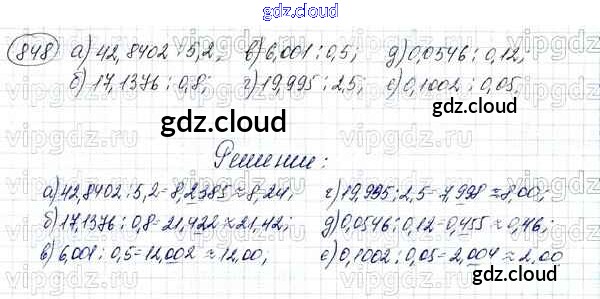 gdz.cloud
848 а) 42,8402 : 5,2; в) 6,001 : 0,5; д) 0,0546 : 0,12;
б) 17,1376 : 0,8; г) 19,995 : 2,5; е) 0,1002 : 0,05.
gdz.cloud
gdz.cloud
Решение:
gdz.cloud
а) 42,8402 : 5,2 = 8,2385 ≈ 8,24; г) 19,995 : 2,5 = 7,998 ≈ 8,00;
б) 17,1376 : 0,8 = 21,422 ≈ 21,42; д) 0,0546 : 0,12 = 0,455 ≈ 0,46;
в) 6,001 : 0,5 = 12,002 ≈ 12,00; е) 0,1002 : 0,05 = 2,004 ≈ 2,00
gdz.cloud